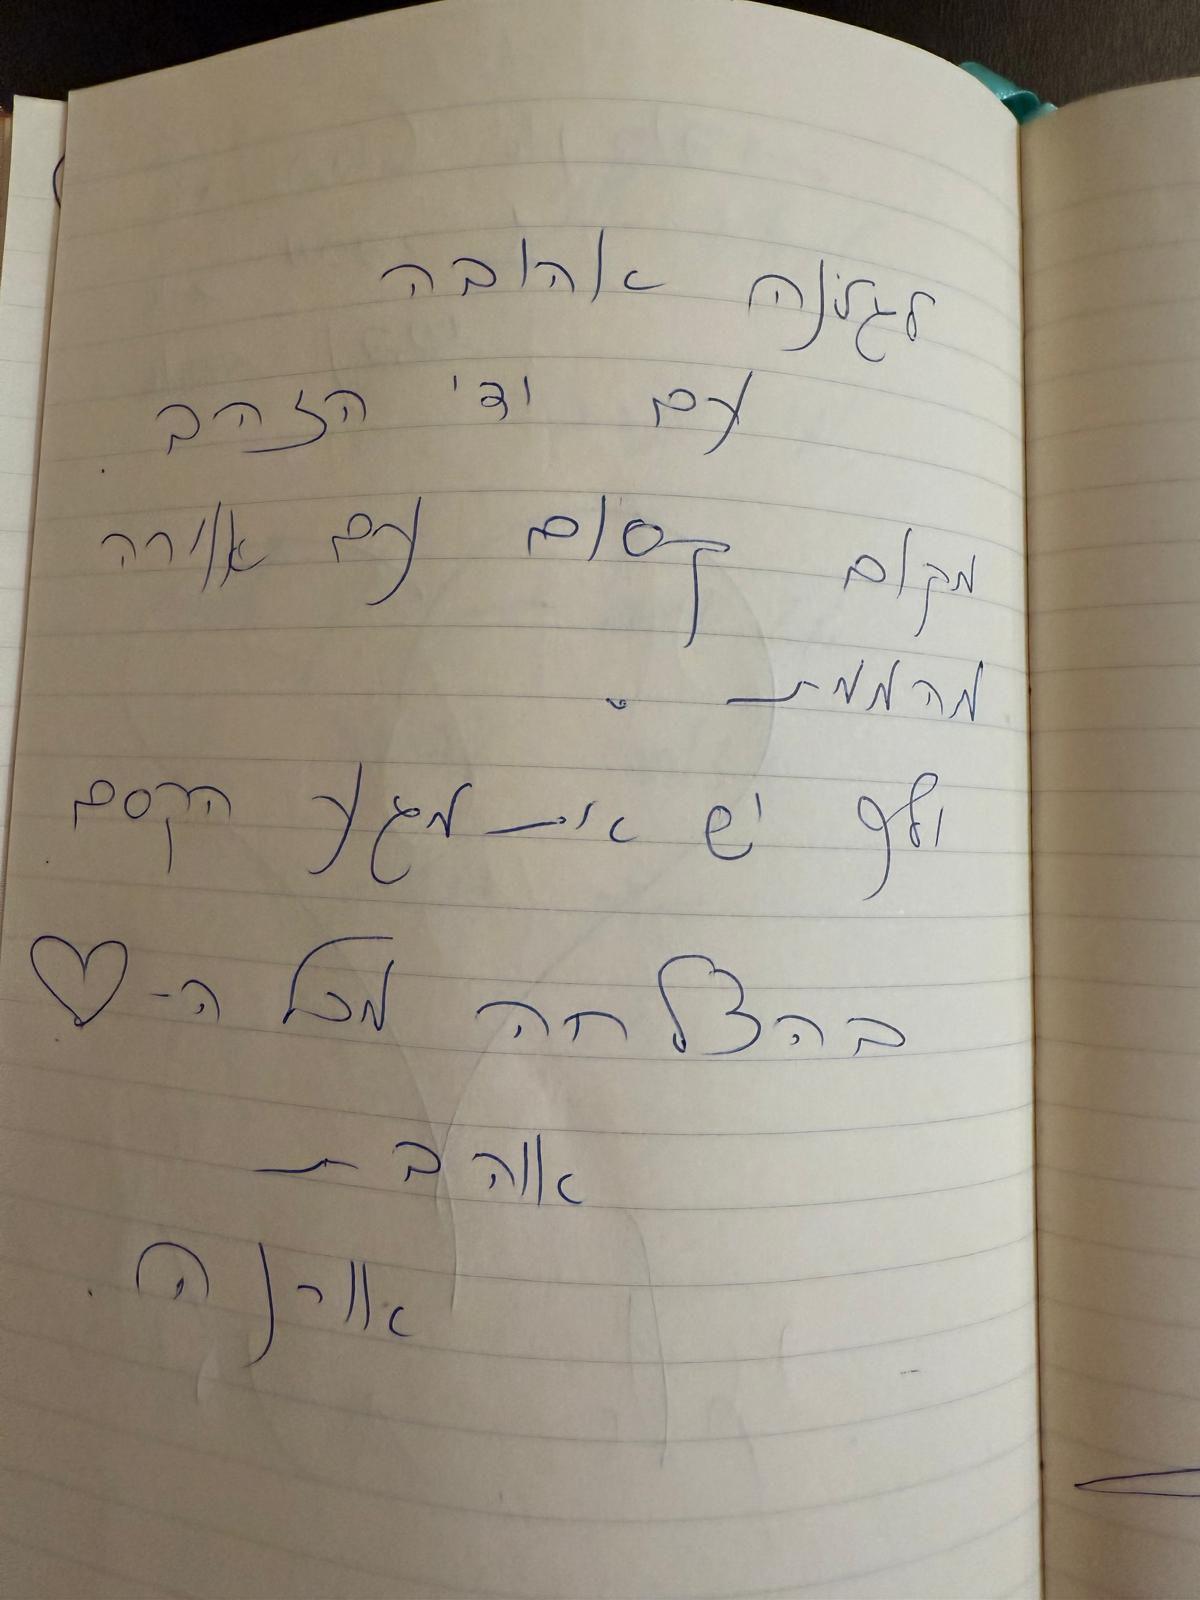 אהובה
עם ידי הזהב
מקום קסום עם אוירה
מהממת.
ולך יש את מגע הקסם
בהצלחה מכל ה-♡
אוהבת
אורנה.